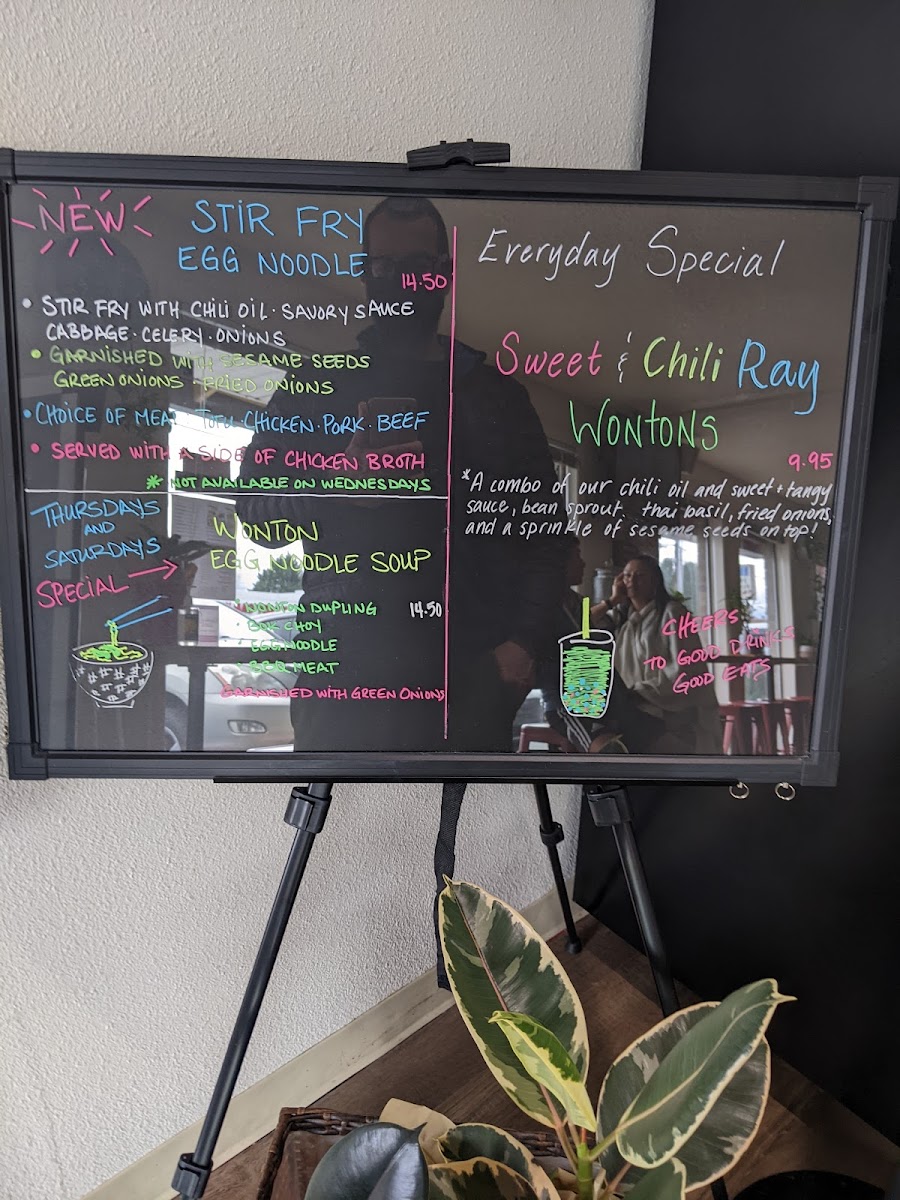 NEW
STIR FRY
EGG NOODLE
14.50
• STIR FRY WITH CHILI OIL · SAVORY SAUCE
CABBAGE · CELERY · ONIONS
• GARNISHED WITH SESAME SEEDS
GREEN ONIONS · FRIED ONIONS
• CHOICE OF MEAT · TOFU · CHICKEN · PORK · BEEF
• SERVED WITH A SIDE OF CHICKEN BROTH
* NOT AVAILABLE ON WEDNESDAYS
THURSDAYS
AND
SATURDAYS
SPECIAL →
WONTON
EGG NOODLE SOUP
14.50
• WONTON DUPLING
• BOK CHOY
• EGG NOODLE
• BBQ MEAT
GARNISHED WITH GREEN ONIONS
Everyday Special
Sweet & Chili Ray
Wontons
9.95
*A combo of our chili oil and sweet + tangy
sauce, bean sprout, thai basil, fried onions,
and a sprinkle of sesame seeds on top!
CHEERS
TO GOOD DRINKS
GOOD EATS